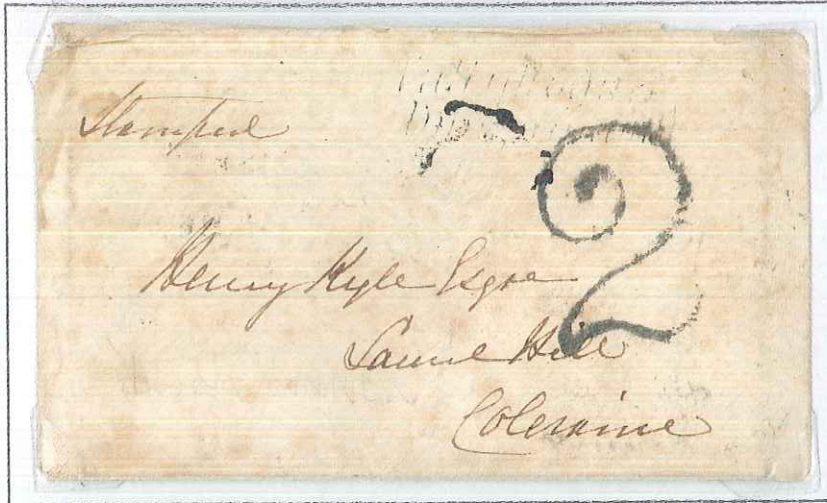 Stamped
2
Henry Kyle Esqre
Laurel Hill
Coleraine